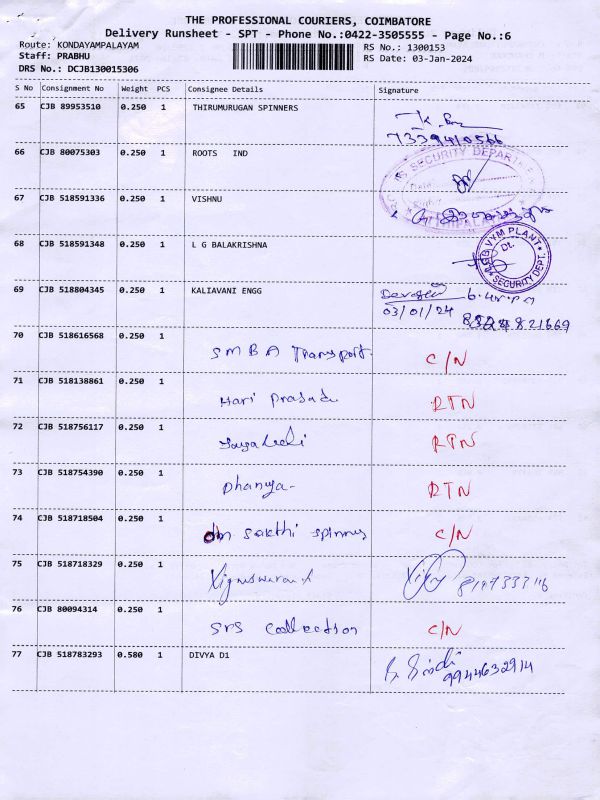 THE PROFESSIONAL COURIERS, COIMBATORE
Delivery Runsheet - SPT - Phone No.:0422-3505555 - Page No.:6
Route: KONDAYAMPALAYAM RS No.: 1300153
Staff: PRABHU RS Date: 03-Jan-2024
DRS No.: DCJB130015306
S No Consignment No Weight PCS Consignee Details Signature
65 CJB 89953510 0.250 1 THIRUMURUGAN SPINNERS
7339410566
66 CJB 80075303 0.250 1 ROOTS IND
SECURITY DEPARTMENT
67 CJB 518591336 0.250 1 VISHNU
68 CJB 518591348 0.250 1 L G BALAKRISHNA
VYM PLANT
Dt.
SECURITY DEPT.
69 CJB 518804345 0.250 1 KALIAVANI ENGG
03/01/24
70 CJB 518616568 0.250 1 SMBA Transport. C/N
71 CJB 518138861 0.250 1 Hari Prasad RTN
72 CJB 518756117 0.250 1 RTN
73 CJB 518754390 0.250 1 Dhanya- RTN
74 CJB 518718504 0.250 1 sakthi spinners C/N
75 CJB 518718329 0.250 1 Vigneswaran
76 CJB 80094314 0.250 1 SrS Collection C/N
77 CJB 518783293 0.580 1 DIVYA D1
9944632914